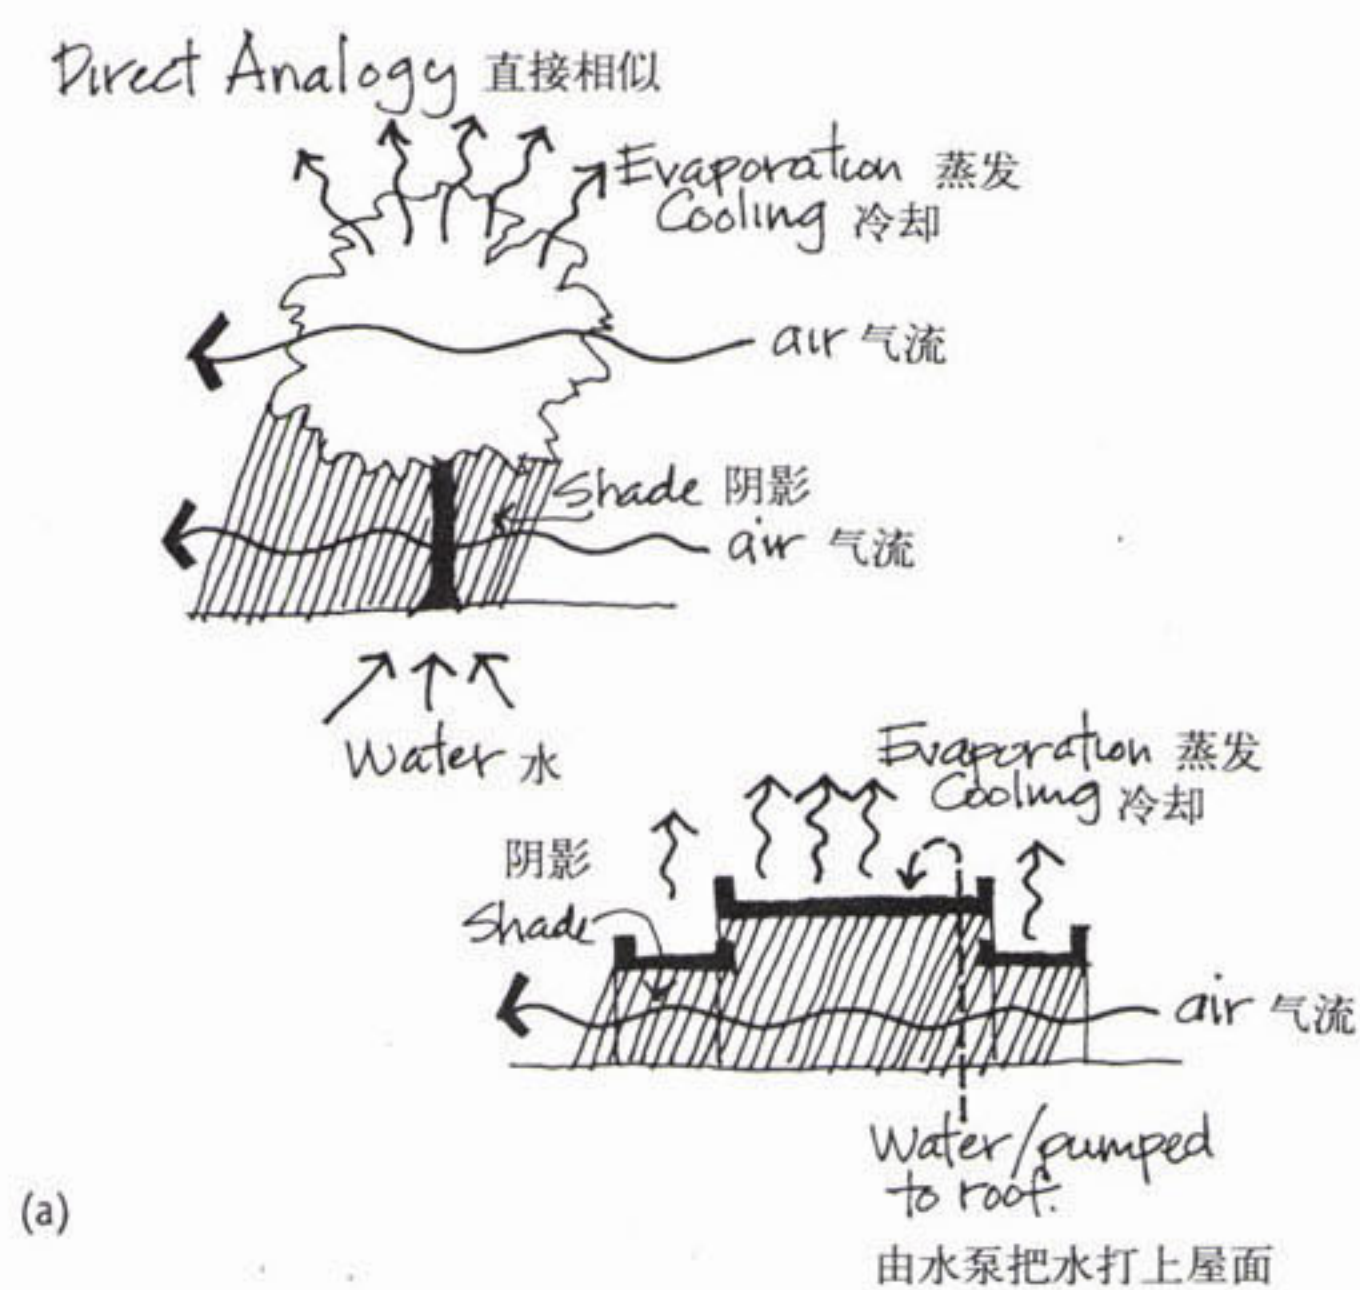 Direct Analogy 直接相似
Evaporation 蒸发
Cooling 冷却
air 气流
Shade 阴影
air 气流
Water 水
Evaporation 蒸发
Cooling 冷却
阴影
Shade
air 气流
Water/pumped
to roof.
由水泵把水打上屋面
(a)